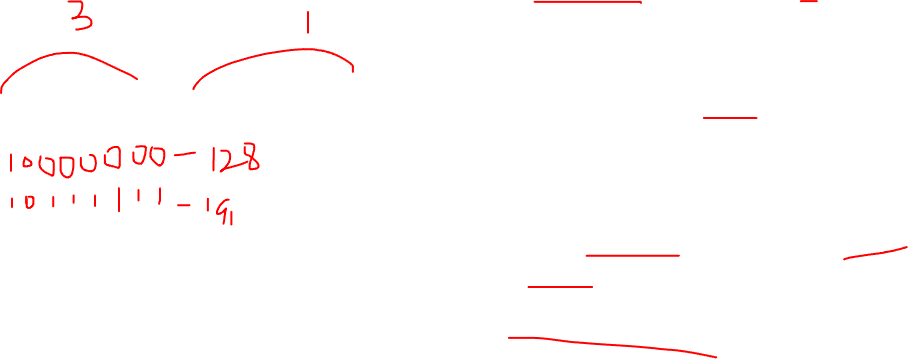 3 1
10000000 - 128
10111111 - 191